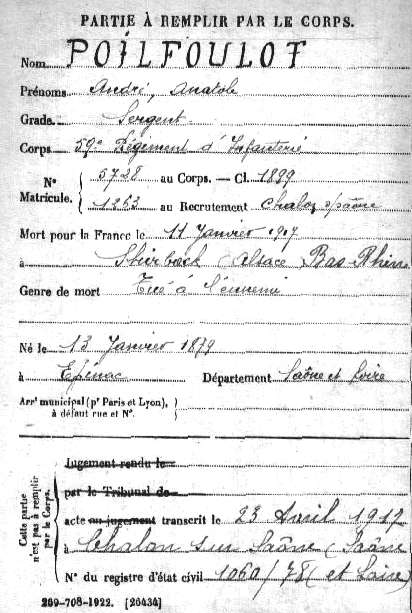 PARTIE À REMPLIR PAR LE CORPS.
Nom POILFOULOT
Prénoms André, Anatole
Grade Sergent
Corps 59e Régiment d'Infanterie
N° Matricule. 5728 au Corps. — Cl. 1899
1263 au Recrutement Chalon s/Saône
Mort pour la France le 11 Janvier 1917
à (Alsace Bas Rhin
Genre de mort Tué à l'ennemi
Né le 13 Janvier 1879
à Epinac Département Saône et Loire
Arrt municipal (pr Paris et Lyon),
à défaut rue et N°.
Cette partie n'est pas à remplir par le Corps.
Jugement rendu le
par le Tribunal de
acte ou jugement transcrit le 23 Avril 1912
à Chalon sur Saône (Saône
N° du registre d'état civil 1060/78 (et Loire)
269-708-1922. [26434]